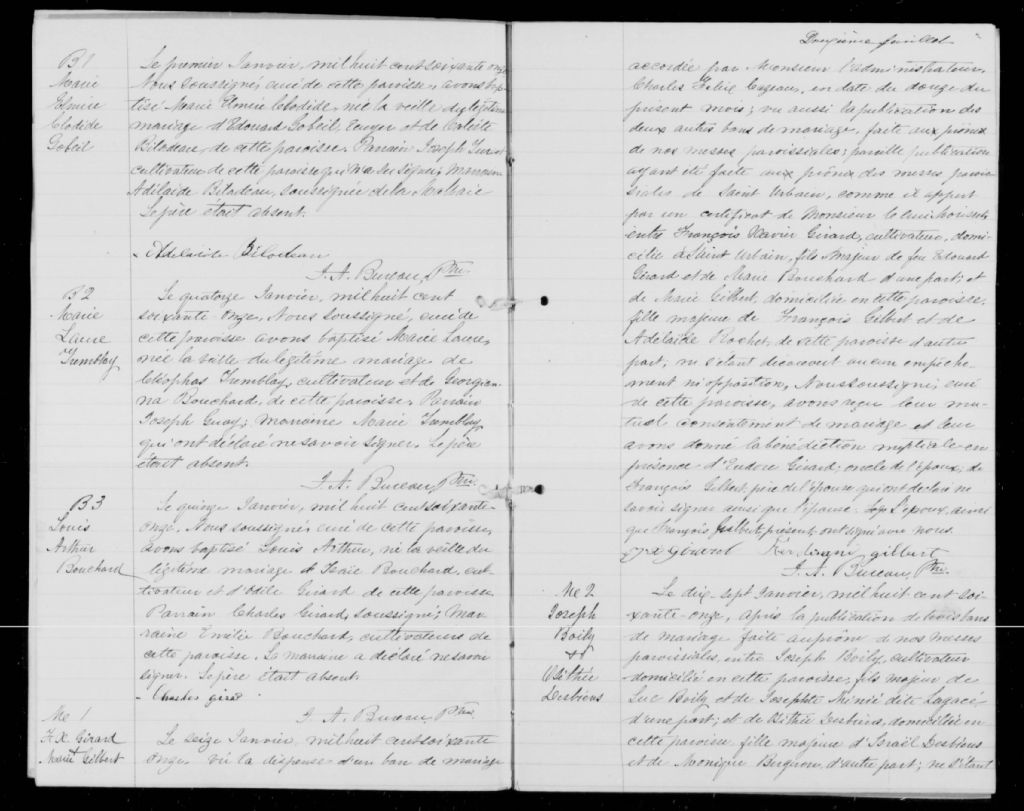 B1
Marie
Elmire
Clodide
Gobeil
Le premier Janvier, mil huit cent soixante onze
Nous soussigné, curé de cette paroisse, avons bap-
tisé Marie Elmire Clodide, née la veille du légitime
mariage d'Edouard Gobeil, et de Calixte
Bilodeau, de cette paroisse. Parrain Joseph
cultivateur de cette paroisse, qui n'a su signer; Marraine
Adélaide Bilodeau, soussignée de la
Le père était absent.
Adelaide Bilodeau
J. A. Bureau, Ptre.
B2
Marie
Laure
Tremblay
Le quatorze Janvier, mil huit cent
soixante onze, Nous soussigné, curé de
cette paroisse avons baptisé Marie Laure,
née la veille du légitime mariage de
Cléophas Tremblay, cultivateur et de Georgian-
na Bouchard, de cette paroisse. Parrain
Joseph Guay; marraine Marie Tremblay
qui ont déclaré ne savoir signer. Le père
était absent.
J. A. Bureau, Ptre.
B3
Louis
Arthur
Bouchard
Le quinze Janvier, mil huit cent soixante-
onze. Nous soussigné, curé de cette paroisse,
avons baptisé Louis Arthur, né la veille du
légitime mariage d'Isaïe Bouchard, cul-
tivateur et d'Odile Girard de cette paroisse
Parrain Charles Girard, soussigné; Mar-
raine Emilie Bouchard, cultivateurs de
cette paroisse. La marraine a déclaré ne savoir
signer. Le père était absent.
Charles girard
J. A. Bureau, Ptre
Me 1
F. X. Girard
Marie Gilbert
Le seize Janvier, mil huit cent soixante
onze, vu la dispense d'un ban de mariage
Douzième feuillet
accordée par Monsieur l'administrateur,
Charles Félix Cazeau, en date du douze du
présent mois; vu aussi la publication des
deux autres bans de mariage, faite aux prônes
de nos messes paroissiales; pareille publication
ayant été faite aux prônes des messes parois-
siales de Saint Urbain, comme il appert
par un certificat de Monsieur le curé
entre François Xavier Girard, cultivateur, domi-
cilié à Saint Urbain, fils majeur de feu Edouard
Girard et de Marie Bouchard d'une part; et
de Marie Gilbert, domiciliée en cette paroisse,
fille majeure de François Gilbert et de
Adélaide Rochet, de cette paroisse d'autre
part; ne s'étant découvert aucun empêche-
ment ni opposition, Nous soussigné, curé
de cette paroisse, avons reçu leur mu-
tuel consentement de mariage et leur
avons donné la bénédiction nuptiale en
présence d'Eudore Girard, oncle de l'époux; de
François Gilbert, père de l'épouse qui ont déclaré ne
savoir signer ainsi que l'épouse. L'époux, ainsi
que François Gilbert, présent, ont signé avec nous.
gilbert
J. A. Bureau, Ptre.
Me 2
Joseph
Boily
&
Desbiens
Le dix-sept Janvier, mil huit cent soi-
xante-onze, après la publication de trois bans
de mariage faite au prône de nos messes
paroissiales, entre Joseph Boily, cultivateur
domicilié en cette paroisse, fils majeur de
Luc Boily et de Josephte Minié dite Lagacé,
d'une part; et de Desbiens, domiciliée en
cette paroisse fille majeure d'Israël Desbiens
et de Monique Bergeron, d'autre part; ne s'étant